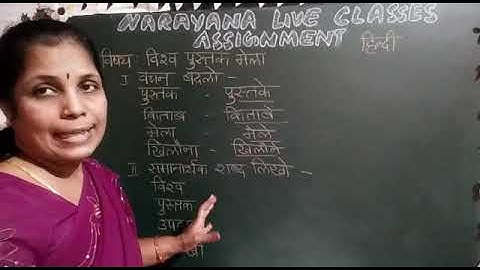 NARAYANA LIVE CLASSES
ASSIGNMENT हिन्दी
विषय: विश्व पुस्तक मेला
I वचन बदलो -
पुस्तक - पुस्तके
किताब - किताबे
मेला - मेले
खिलौना - खिलौने
II समानार्थक शब्द लिखो -
विश्व
पुस्तक